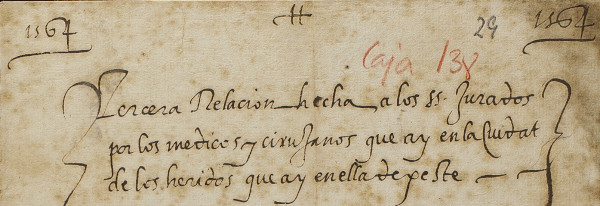 1564 29 1564
Caja 138
Tercera Relacion hecha a los ss. Jurados
por los medicos y cirujanos que ay en la Ciudat
de los heridos que ay en ella de peste